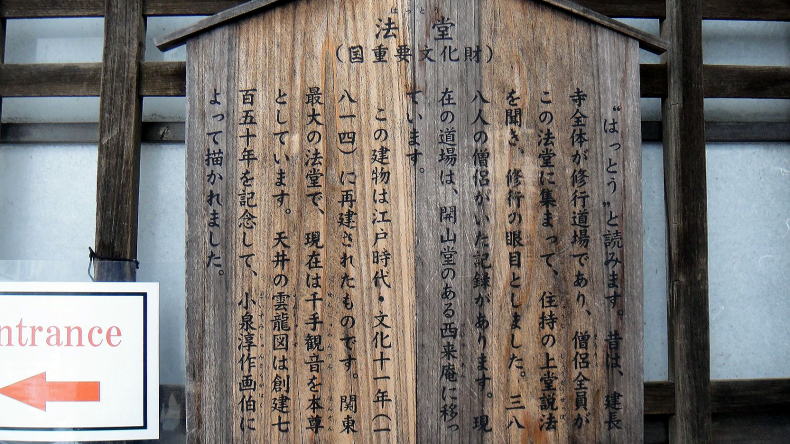 はっとう
法堂
（国重要文化財）
“はっとう”と読みます。昔は、建長
寺全体が修行道場であり、僧侶全員が
この法堂に集まって、住持の上堂説法
を聞き、修行の眼目としました。三八
八人の僧侶がいた記録があります。現
在の道場は、開山堂のある西来庵に移っ
ています。
この建物は江戸時代・文化十一年（一
八一四）に再建されたものです。関東
最大の法堂で、現在は千手観音を本尊
としています。天井の雲龍図は創建七
百五十年を記念して、小泉淳作画伯に
よって描かれました。
ntrance